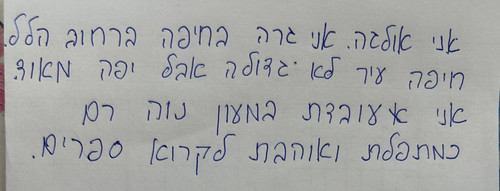 אני אולגה. אני גרה בחיפה ברחוב הלל.
חיפה עיר לא גדולה אבל יפה מאוד.
אני עובדת במעון נווה רם
כמתפלת ואוהבת לקרוא ספרים.